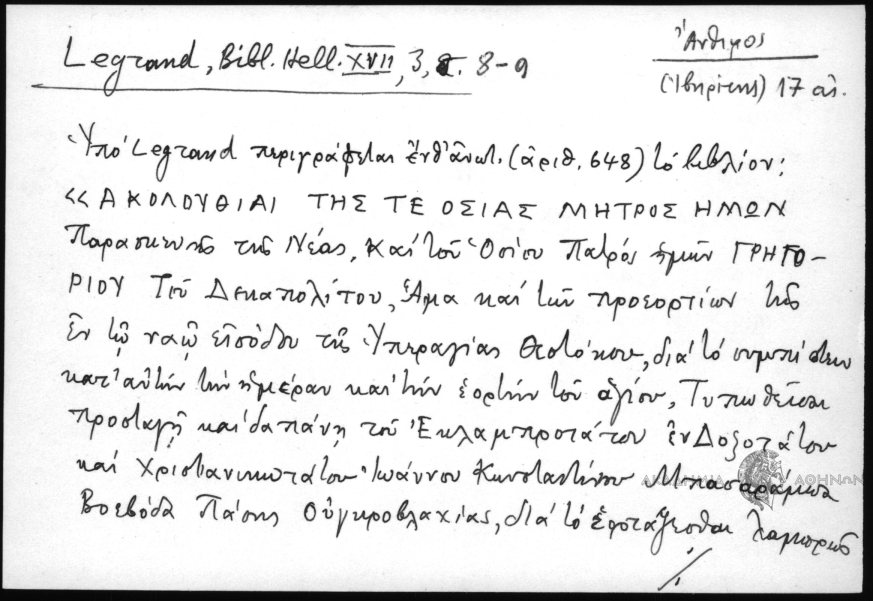 Ἄνθιμος
Legrand, Bibl. Hell. XVII, 3, σ. 8-9
(Ἰβηρίτης) 17 αἰ.
Ὑπό Legrand περιγράφεται ἐνθ' ἀνωτ. (ἀριθ. 648) τό βιβλίον:
<<ΑΚΟΛΟΥΘΙΑΙ ΤΗΣ ΤΕ ΟΣΙΑΣ ΜΗΤΡΟΣ ΗΜΩΝ
Παρασκευῆς τῆς Νέας, καί τοῦ Ὁσίου Πατρός ἡμῶν ΓΡΗΓΟ-
ΡΙΟΥ Τοῦ Δεκαπολίτου, Ἅμα καί τῶν προεορτίων τῆς
Ἐν τῷ ναῷ εἰσόδου τῆς Ὑπεραγίας Θεοτόκου, διά τό συμπίπτειν
κατ' αὐτήν τήν ἡμέραν καί τήν ἑορτήν τοῦ ἁγίου, Τυπωθεῖσαι
προσταγῇ καί δαπάνῃ τοῦ Ἐκλαμπροτάτου ἐνΔοξοτάτου
καί Χριστιανικωτάτου Ἰωάννου Κωνσταντίνου Μπασαράμπα
ΑΚΑΔΗΜΙΑ ΑΘΗΝΩΝ
Βοεβόδα Πάσης Οὐγκροβλαχίας, διά τό ἑορτάζεσθαι λαμπρῶς